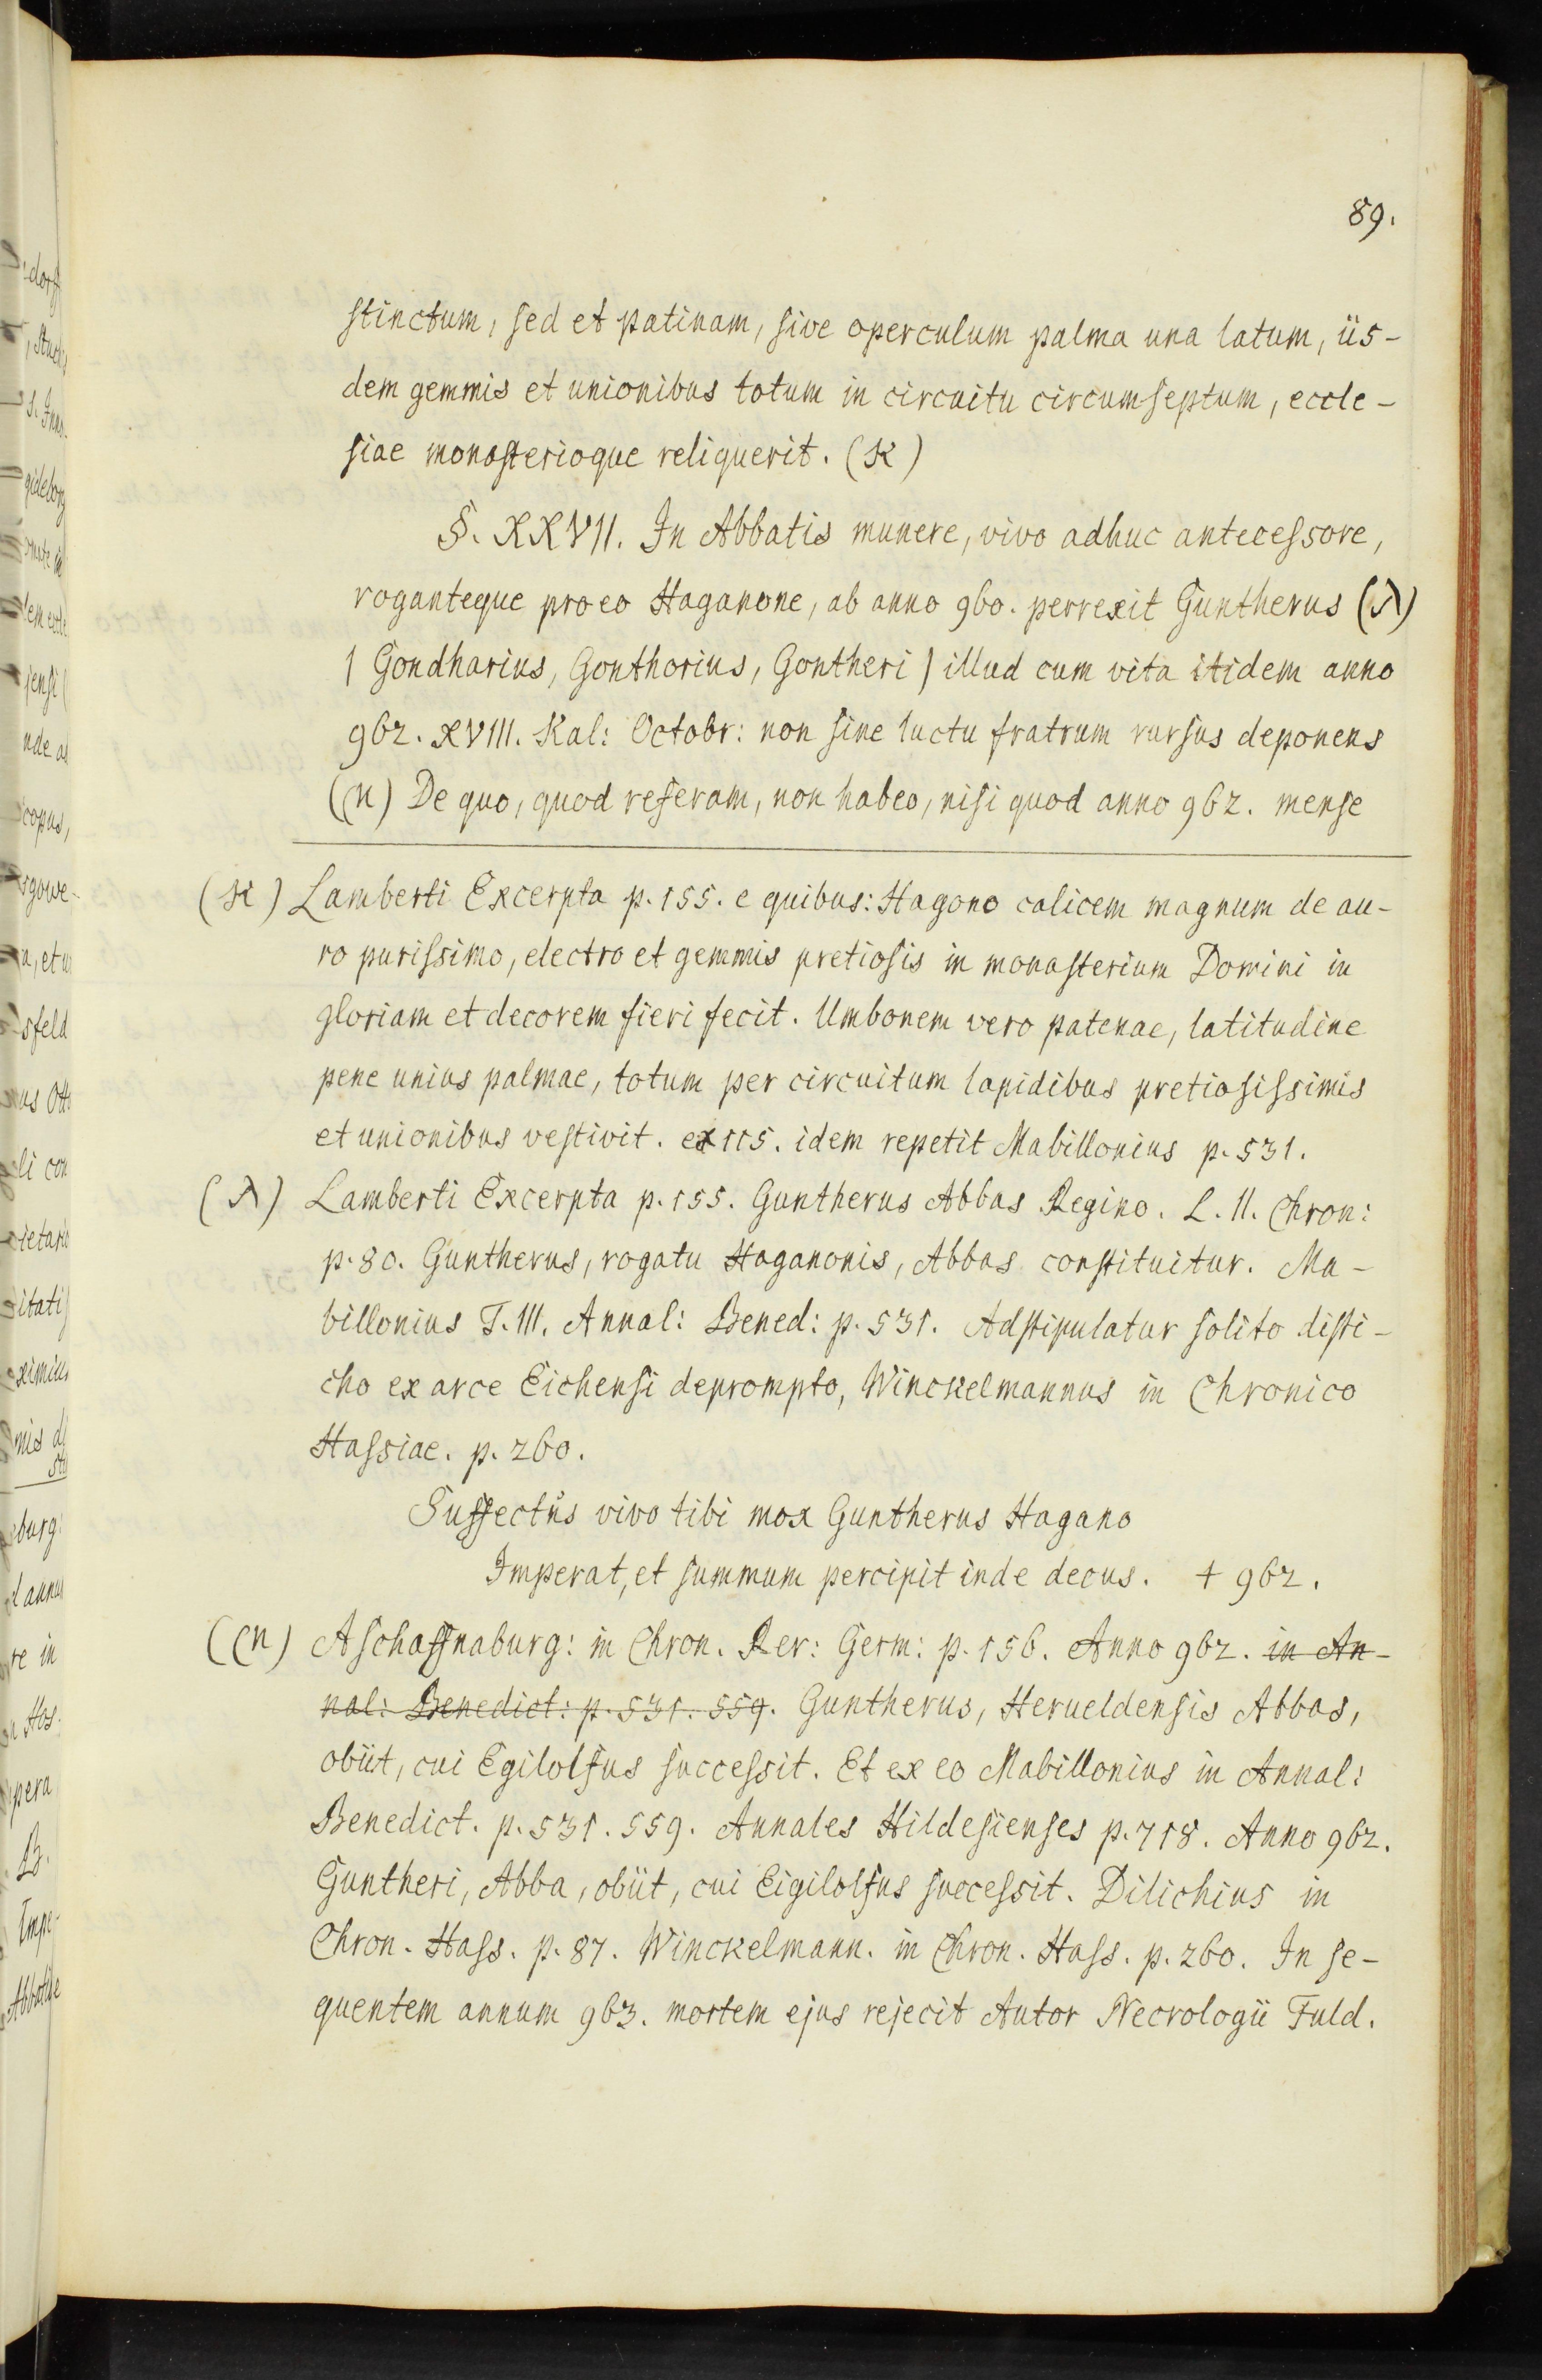 89.
stinctum, sed et patinam, sive operculum palma una latum, iis-
dem gemmis et unionibus totum in circuitu circumseptum, eccle-
siae monasterioque reliquerit. (K)
§. XXVII. In Abbatis munere, vivo adhuc antecessore,
roganteque pro eo Haganone, ab anno 960. perrexit Guntherus (λ)
(Gondharius, Gonthorius, Gontheri) illud cum vita itidem anno
962. XVIII. Kal: Octobr: non sine luctu fratrum rursus deponens
(n) De quo, quod referam, non habeo, nisi quod anno 962. mense
(K) Lamberti Excerpta p. 155. e quibus: Hagono calicem magnum de au-
ro purissimo, electro et gemmis pretiosis in monasterium Domini in
gloriam et decorem fieri fecit. Umbonem vero patenae, latitudine
pene unius palmae, totum per circuitum lapidibus pretiosissimis
et unionibus vestivit. ex 115. idem repetit Mabillonius p. 531.
(λ) Lamberti Excerpta p. 155. Guntherus Abbas Regino. L. II. Chron:
p. 80. Guntherus, rogatu Haganonis, Abbas constituitur. Ma-
billonius T. III. Annal: Bened: p. 531. Adstipulatur solito disti-
cho ex arce Eichensi deprompto, Winckelmannus in Chronico
Hassiae. p. 260.
Suffectus vivo tibi mox Guntherus Hagano
Imperat, et summum percipit inde decus. + 962.
((n) Aschaffnaburg: in Chron. Rer: Germ: p. 156. Anno 962. in An-
nal: Benedict: p. 531. 559. Guntherus, Herueldensis Abbas,
obiit, cui Egilolfus successit. Et ex eo Mabillonius in Annal:
Benedict. p. 531. 559. Annales Hildesienses p. 718. Anno 962.
Guntheri, Abba, obiit, cui Eigilolfus successit. Dilichius in
Chron. Hass. p. 87. Winckelmann. in Chron. Hass. p. 260. In se-
quentem annum 963. mortem ejus rejecit Autor Necrologii Fuld.